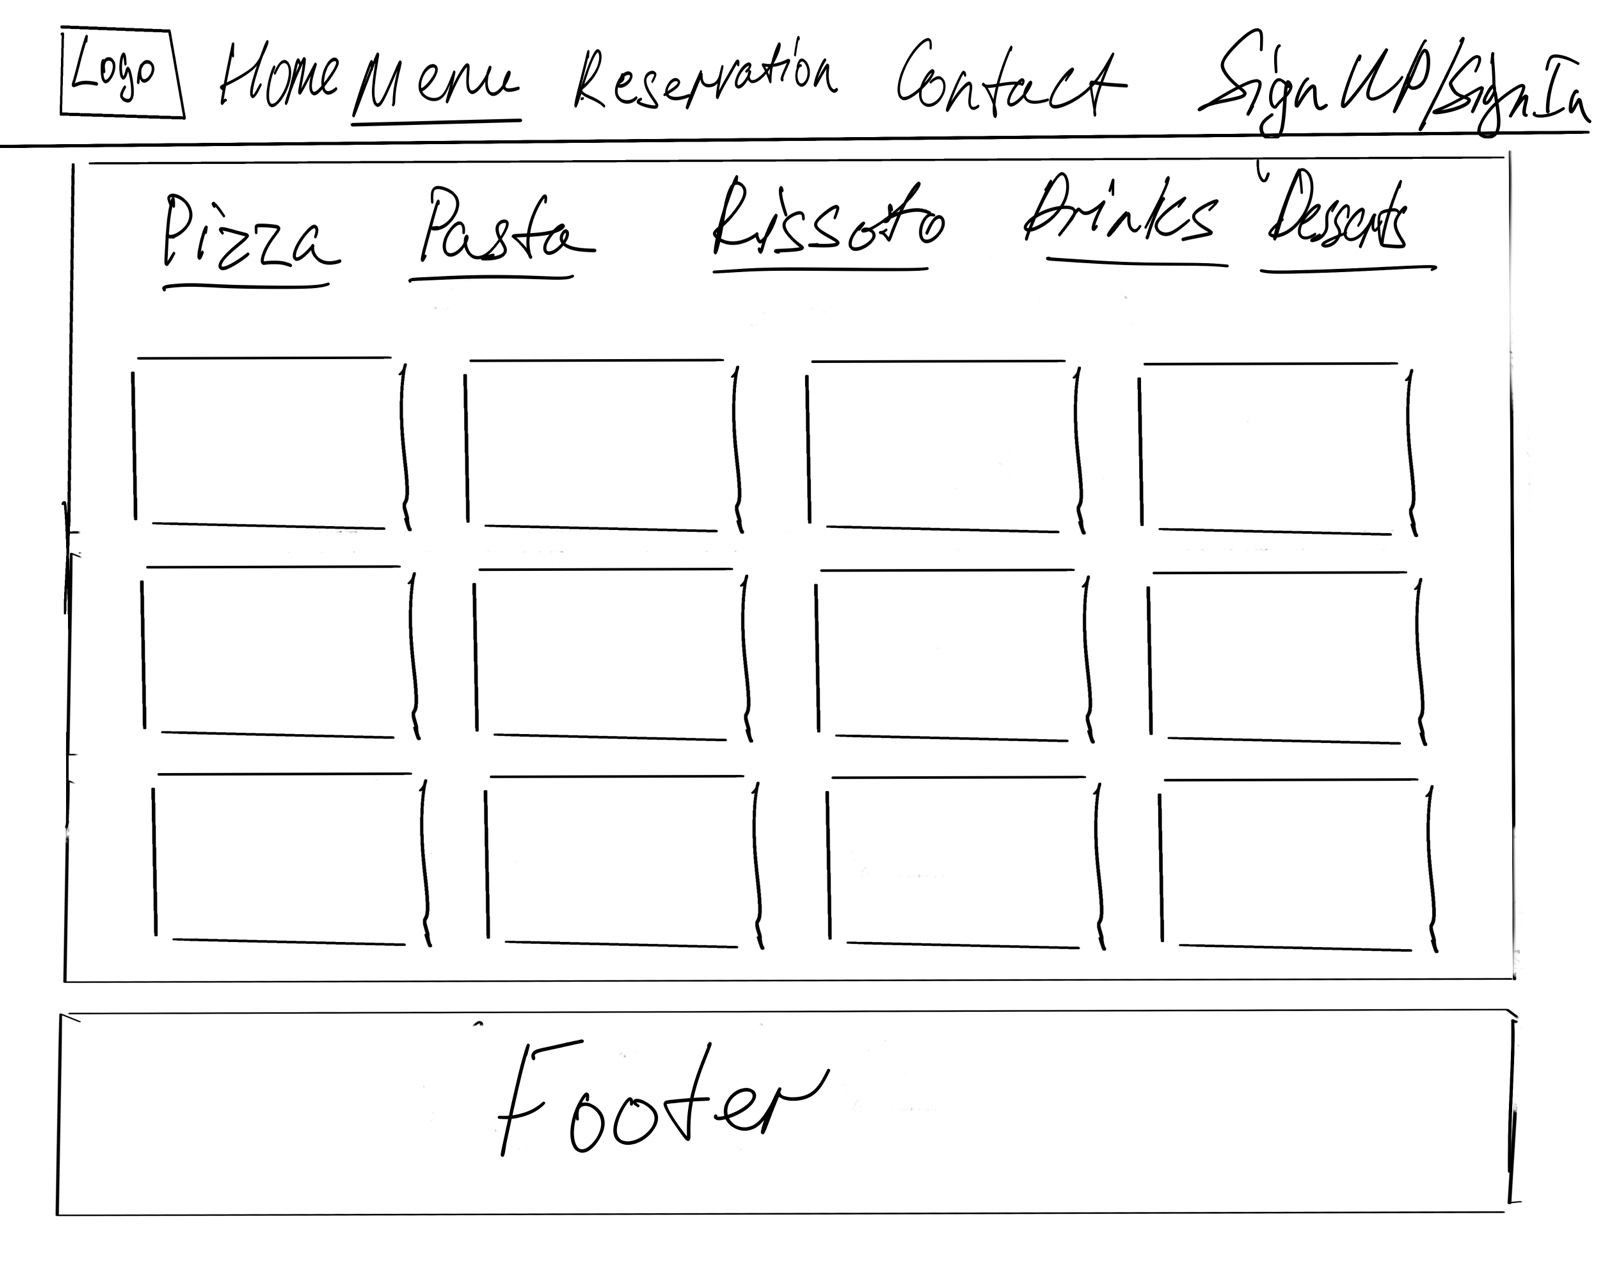 Logo Home Menu Reservation Contact Sign UP/Sign In
Pizza Pasta Rissoto Drinks Desserts
Footer